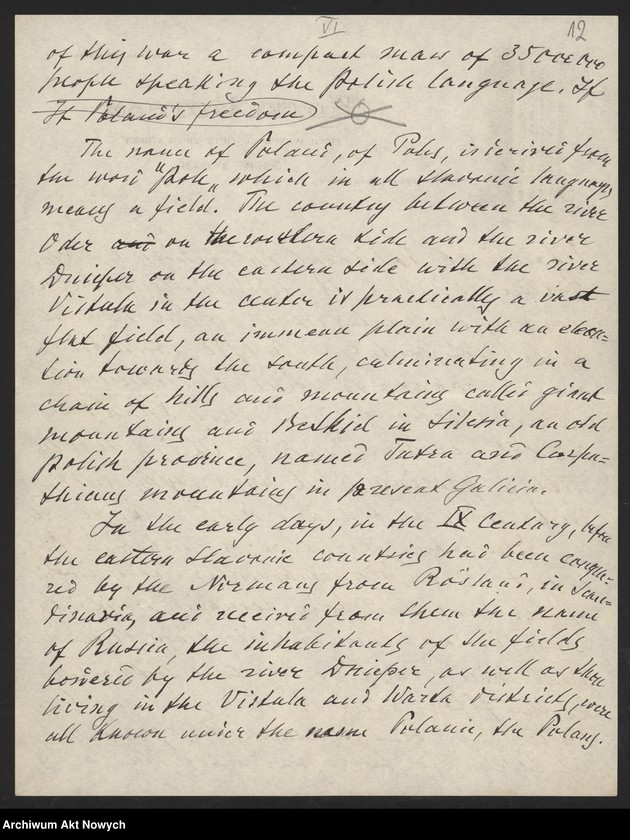 VI
12
of this war a compact mass of 35000000
people speaking the Polish language. If
It Poland's freedom
The name of Poland, of Poles, is derived from
the word "Pole" which in all Slavonic languages
means a field. The country between the river
Oder and on the western side and the river
Dnieper on the eastern side with the river
Vistula in the center is practically a vast
flat field, an immense plain with an eleva-
tion towards the south, culminating in a
chain of hills and mountains called giant
mountains and Beskid in Silesia, an old
Polish province, named Tatra and Carpa-
thians mountains in present Galicia.
In the early days, in the IX Century, before
the eastern Slavonic countries had been conque-
red by the Normans from Rosland, in Scan-
dinavia, and received from them the name
of Russia, the inhabitants of the fields
bowered by the river Dnieper, as well as those
living in the Vistula and Warta districts, were
all known under the name Polanie, the Polans.
Archiwum Akt Nowych